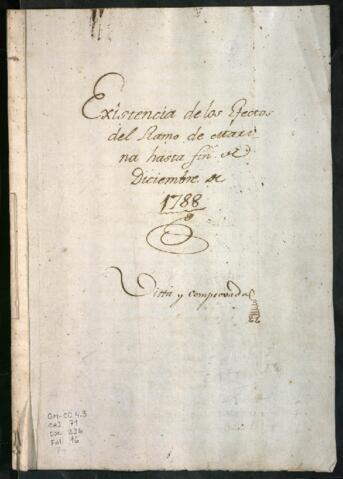 Existencia de los Efectos
del Ramo de Mari
na hasta fin de
Diciembre de
1788
Vista y comprovada
OM-CC 4.3
CAJ 71
DOC 236
Fol 16